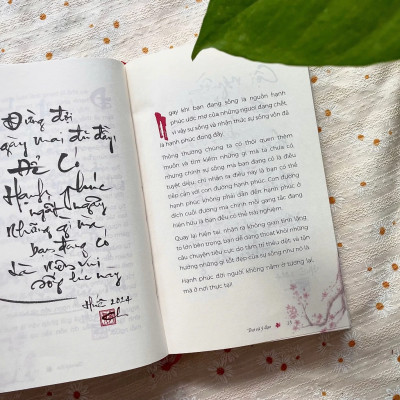 Đừng đợi
ngày mai đủ đầy
Để Có
Hạnh phúc
ngất ngây
Những gì mà
bạn đang có
Là niềm vui
sống lúc này
Huế 2024
Ngay khi bạn đang sống là nguồn hạnh
phúc ước mơ của những người đang chết,
vì vậy sự sống và nhận thức sự sống vốn đã
là hạnh phúc đang đầy.
Thông thường chúng ta có thói quen thèm
muốn và tìm kiếm những gì mà ta chưa có,
nhưng chính sự sống mà bạn đang có là điều
tuyệt diệu, chỉ nhận ra điều này là bạn có thể
tiếp cận với con đường hạnh phúc. Con đường
hạnh phúc không phải dẫn đến hạnh phúc ở
đích cuối đường mà chính mỗi gang tấc đang
hiện hữu là bạn đều có thể trải nghiệm.
Quay lại hiện tại, nhận ra không gian tĩnh lặng
to lớn bên trong, bạn dễ dàng thoát khỏi những
câu chuyện tiêu cực do tâm trí thêu dệt và tận
hưởng những gì tốt đẹp của sự sống như nó là.
Hạnh phúc đời người không nằm ở tương lai,
mà ở nơi thực tại!